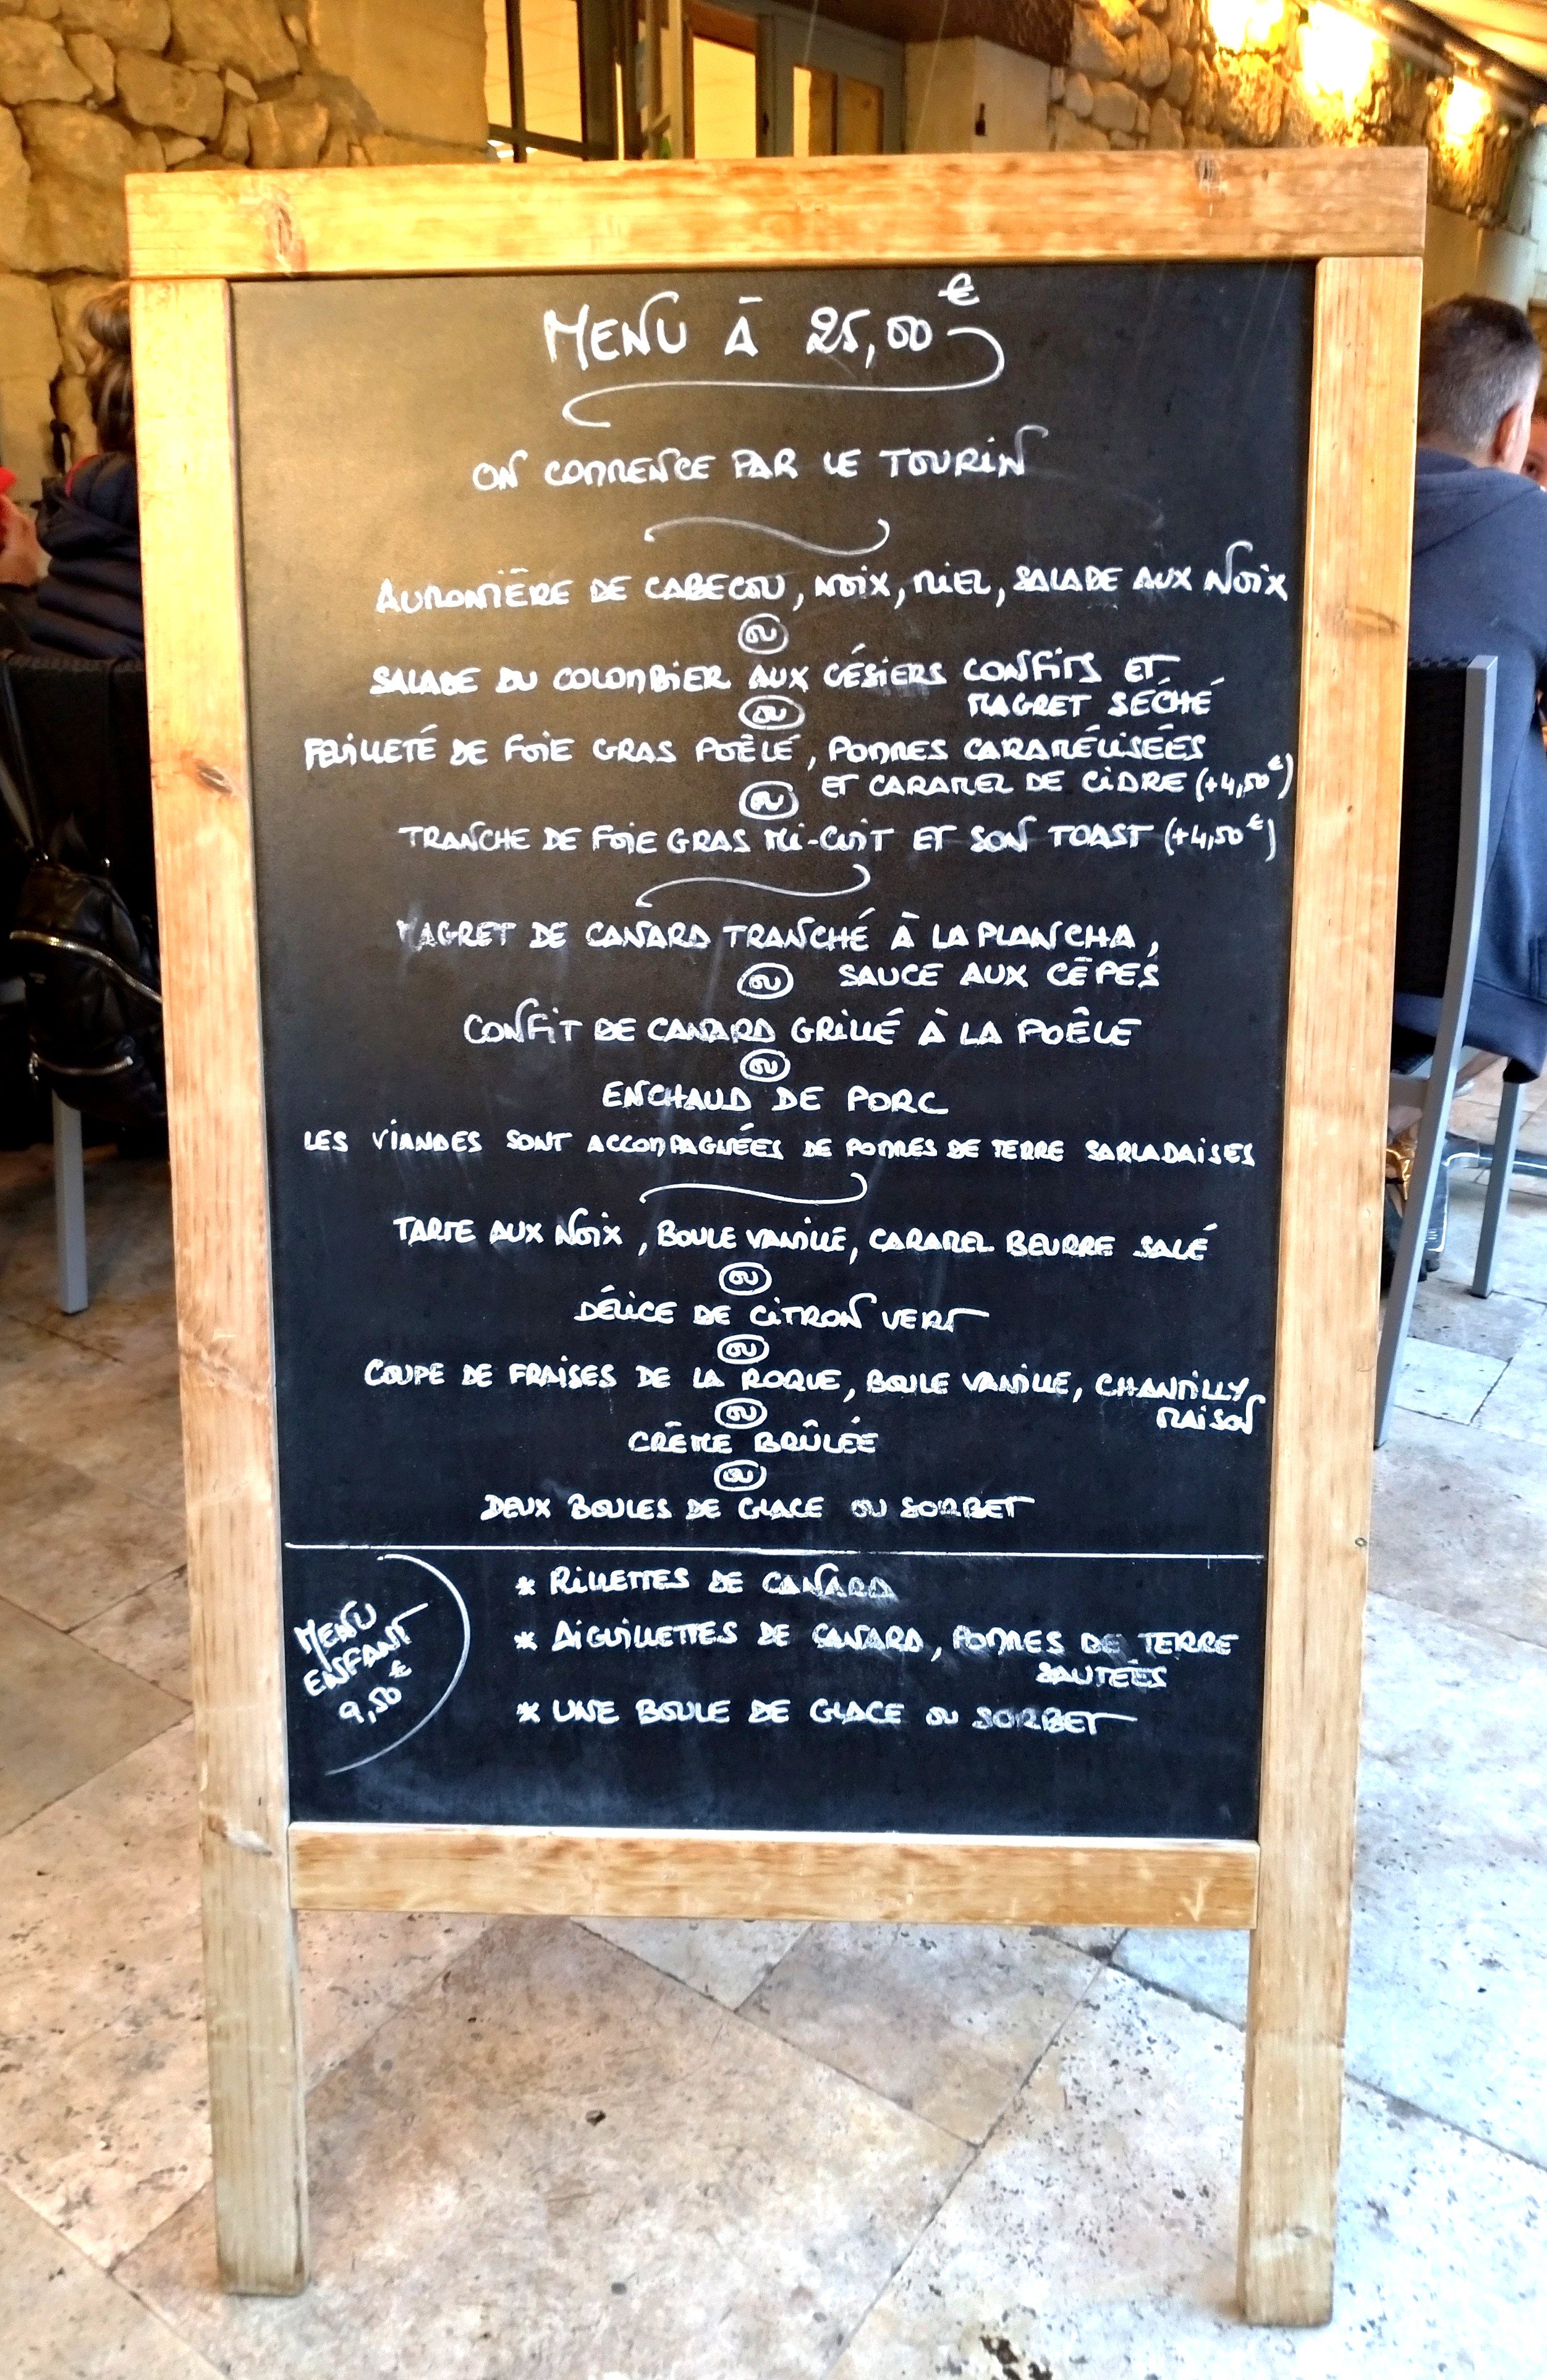 MENU À 25,00€
ON COMMENCE PAR LE TOURIN
AUMONIÈRE DE CABECOU, NOIX, MIEL, SALADE AUX NOIX
OU
SALADE DU COLOMBIER AUX GÉSIERS CONFITS ET
MAGRET SÉCHÉ
OU
FEUILLETÉ DE FOIE GRAS POÊLÉ, POMMES CARAMÉLISÉES
ET CARAMEL DE CIDRE (+4,50€)
OU
TRANCHE DE FOIE GRAS MI-CUIT ET SON TOAST (+4,50€)
MAGRET DE CANARD TRANCHÉ À LA PLANCHA,
SAUCE AUX CÈPES
OU
CONFIT DE CANARD GRILLÉ À LA POÊLE
OU
ENCHAUD DE PORC
LES VIANDES SONT ACCOMPAGNÉES DE POMMES DE TERRE SARLADAISES
TARTE AUX NOIX, BOULE VANILLE, CARAMEL BEURRE SALÉ
OU
DÉLICE DE CITRON VERT
OU
COUPE DE FRAISES DE LA ROQUE, BOULE VANILLE, CHANTILLY
MAISON
OU
CRÈME BRÛLÉE
OU
DEUX BOULES DE GLACE OU SORBET
MENU
ENFANT
9,50€
* RILLETTES DE CANARD
* AIGUILLETTES DE CANARD, POMMES DE TERRE
SAUTÉES
* UNE BOULE DE GLACE OU SORBET